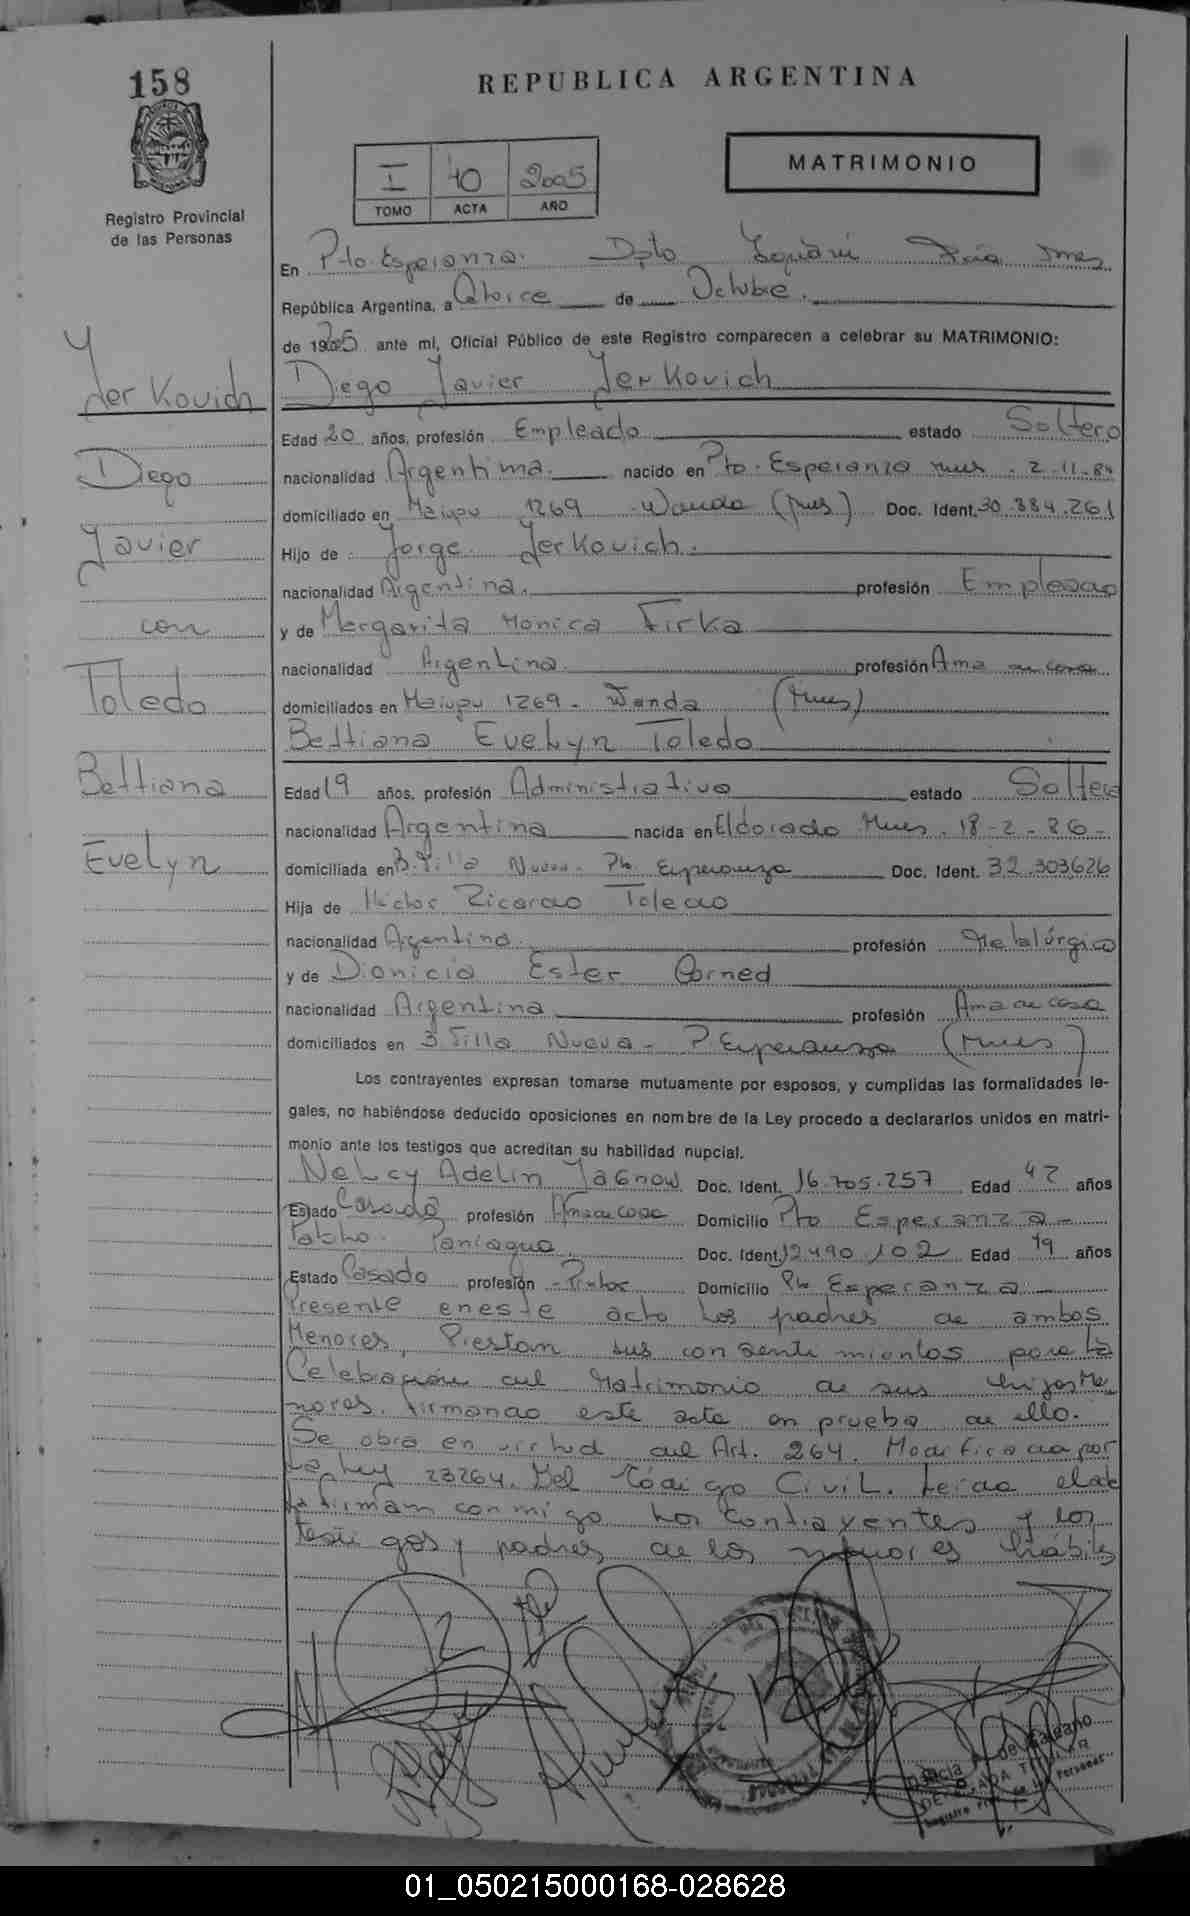 158
REPUBLICA ARGENTINA
MATRIMONIO
I 40 2005
TOMO ACTA AÑO
Registro Provincial
de las Personas
En Pto. Esperanza. Dpto Iguazú Pcia Mnes
República Argentina, a Catorce de Octubre.
de 192005 ante mí, Oficial Público de este Registro comparecen a celebrar su MATRIMONIO:
Jerkovich
Diego Javier Jerkovich
Edad 20 años, profesión Empleado estado Soltero
Diego
nacionalidad Argentina. nacido en Pto. Esperanza Mnes. 2-11-84
domiciliado en Maipu 1269 Wanda (Mnes) Doc. Ident. 30.884.261
Javier
Hijo de Jorge Jerkovich.
nacionalidad Argentina. profesión Empleado
con
y de Margarita Monica Firka
nacionalidad Argentina. profesión Ama de casa
Toledo
domiciliados en Maipu 1269. Wanda (Mnes)
Bettiana Evelyn Toledo
Bettiana
Edad 19 años, profesión Administrativa estado Soltera
nacionalidad Argentina nacida en Eldorado Mnes. 18-2-86-
Evelyn
domiciliada en B. Villa Nueva. Pto. Esperanza Doc. Ident. 32.303626
Hija de Héctor Ricardo Toledo
nacionalidad Argentina. profesión Metalúrgico
y de Dionicia Ester Corned
nacionalidad Argentina profesión Ama de casa
domiciliados en B. Villa Nueva - P. Esperanza (Mnes)
Los contrayentes expresan tomarse mutuamente por esposos, y cumplidas las formalidades le-
gales, no habiéndose deducido oposiciones en nombre de la Ley procedo a declararlos unidos en matri-
monio ante los testigos que acreditan su habilidad nupcial.
Nelcy Adelin Jagnow Doc. Ident. 16.705.257 Edad 42 años
Estado Casada profesión Ama de casa Domicilio Pto Esperanza-
Paniagua Doc. Ident. 12490.102 Edad 49 años
Estado Casado profesión Pintor Domicilio Pto Esperanza
Presente en este acto los padres de ambos
Menores, Prestan sus consentimientos para la
Celebración del Matrimonio de sus hijos Me
nores. firmando este acta en prueba de ello.
Se obra en virtud del Art. 264. Modificada por
La Ley 23264. Del Código Civil. Leida el acta
la firman conmigo los contrayentes y los
testigos y padres de los menores hábiles
de Galeano
DELEGADA TITULAR
Registro Prov. de las Personas
01_050215000168-028628